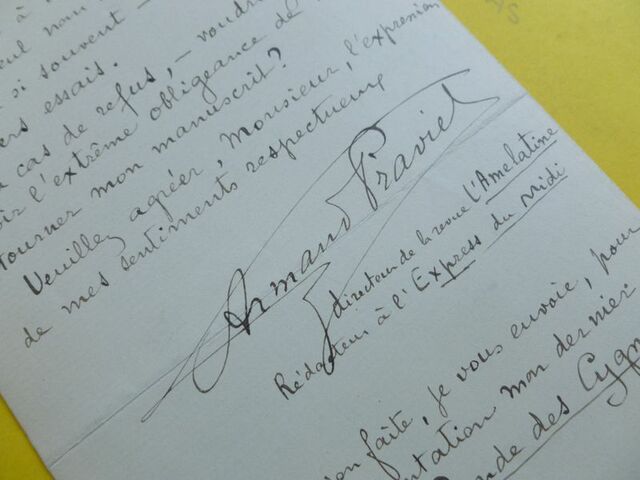 si souvent —
essais.
cas de refus, — voudri
l'extrême obligeance de
tourner mon manuscrit?
Veuillez agréer, Monsieur, l'expression
de mes sentiments respectueux
Armand Praviel
directeur de la revue L'Amelatine
Rédacteur à l'Express du Midi
faite, je vous envoie, pour
mon dernier
des Cygn